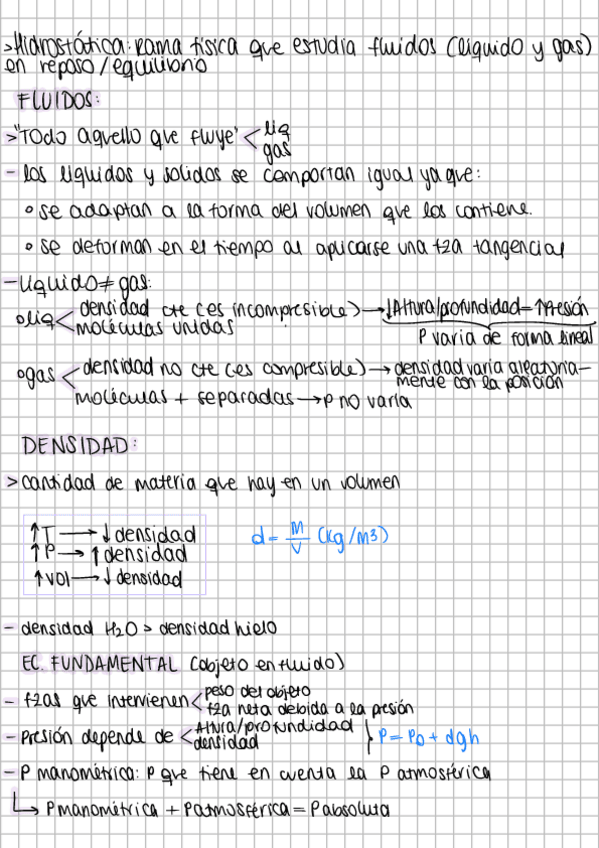 >Hidrostática: rama física que estudia fluidos (líquido y gas)
en reposo/equilibrio
FLUIDOS:
>"Todo aquello que fluye" < liq
gas
- los líquidos y solidos se comportan igual ya que:
° se adaptan a la forma del volumen que los contiene.
° se deforman en el tiempo al aplicarse una fza tangencial
- Líquido ≠ gas:
° liq < densidad cte (es incompresible) → ↓Altura/profundidad = ↑Presión
moléculas unidas
P varia de forma lineal
° gas < densidad no cte (es compresible) → densidad varia aleatoria-
mente con la posición
moléculas + separadas → P no varia
DENSIDAD:
> cantidad de materia que hay en un volumen
↑T → ↓ densidad
↑P → ↑ densidad
↑vol → ↓ densidad
d = M/V (Kg/m3)
- densidad H2O > densidad hielo
EC. FUNDAMENTAL (objeto en fluido)
- fzas que intervienen < peso del objeto
fza neta debida a la presión
- Presión depende de < Altura/profundidad
densidad
} P = P0 + dgh
- P manométrica: P que tiene en cuenta la P atmosférica
↳ Pmanométrica + Patmosférica = Pabsoluta